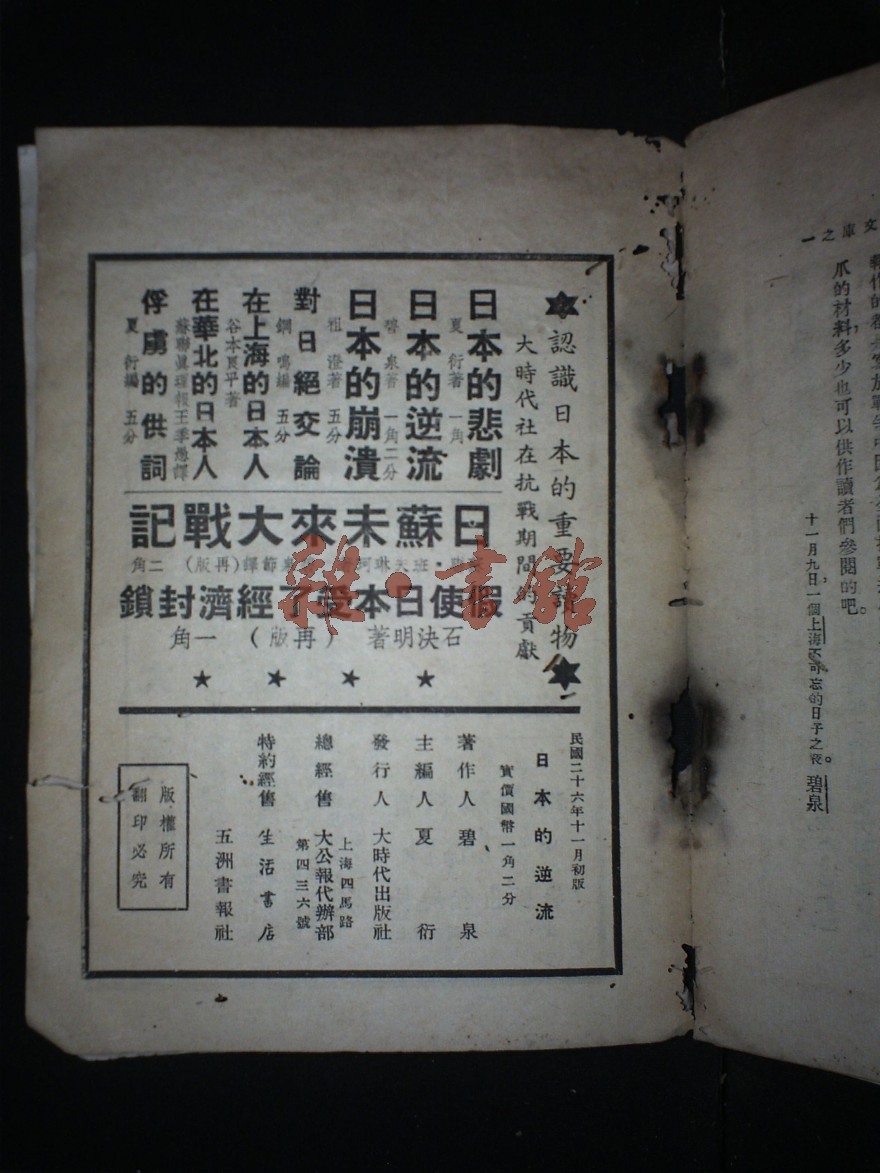 文庫之一
爪的材料，多少也可以供作讀者們參閱的吧。
十一月九日一個上海不可忘的日子之夜。碧泉
認識日本的重要讀物
大時代社在抗戰期間的貢獻
日本的悲劇
夏衍著 一角
日本的逆流
碧泉著 一角二分
日本的崩潰
祖澄著 五分
對日絕交論
鋼鳴編 五分
在上海的日本人
谷本良平著
在華北的日本人
蘇聯眞理報王季愚譯
俘虜的供詞
夏衍編 五分
日蘇未來大戰記
節譯(再版) 二角
假使日本受了經濟封鎖
石決明著 (再版) 一角
民國二十六年十一月初版
日本的逆流
實價國幣一角二分
著作人 碧泉
主編人 夏衍
發行人 大時代出版社
上海四馬路
總經售 大公報代辦部
第四三六號
特約經售 生活書店
五洲書報社
版權所有
翻印必究
雜·書館